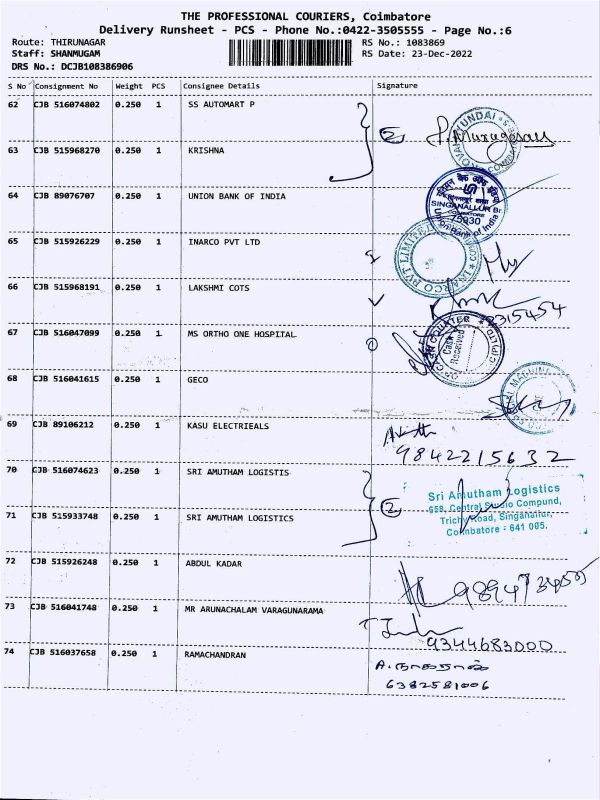 THE PROFESSIONAL COURIERS, Coimbatore
Delivery Runsheet - PCS - Phone No.:0422-3505555 - Page No.:6
Route: THIRUNAGAR RS No.: 1083869
Staff: SHANMUGAM RS Date: 23-Dec-2022
DRS No.: DCJB108386906
S No Consignment No Weight PCS Consignee Details Signature
62 CJB 516074802 0.250 1 SS AUTOMART P
2
HYUNDAI
63 CJB 515968270 0.250 1 KRISHNA
64 CJB 89076707 0.250 1 UNION BANK OF INDIA
SINGANALLUR Br.
COIMBATORE
75930
Union Bank of India
65 CJB 515926229 0.250 1 INARCO PVT LTD
INARCO PVT LIMITED
66 CJB 515968191 0.250 1 LAKSHMI COTS
67 CJB 516047099 0.250 1 MS ORTHO ONE HOSPITAL
Received
68 CJB 516041615 0.250 1 GECO
69 CJB 89106212 0.250 1 KASU ELECTRIEALS
9842215632
70 CJB 516074623 0.250 1 SRI AMUTHAM LOGISTIS
2
Sri Amutham Logistics
658, Central Studio Compund,
Trichy Road, Singanallur,
Coimbatore : 641 005.
71 CJB 515933748 0.250 1 SRI AMUTHAM LOGISTICS
72 CJB 515926248 0.250 1 ABDUL KADAR
73 CJB 516041748 0.250 1 MR ARUNACHALAM VARAGUNARAMA
9344683000
74 CJB 516037658 0.250 1 RAMACHANDRAN
A. நாகராஜ்
6382581006